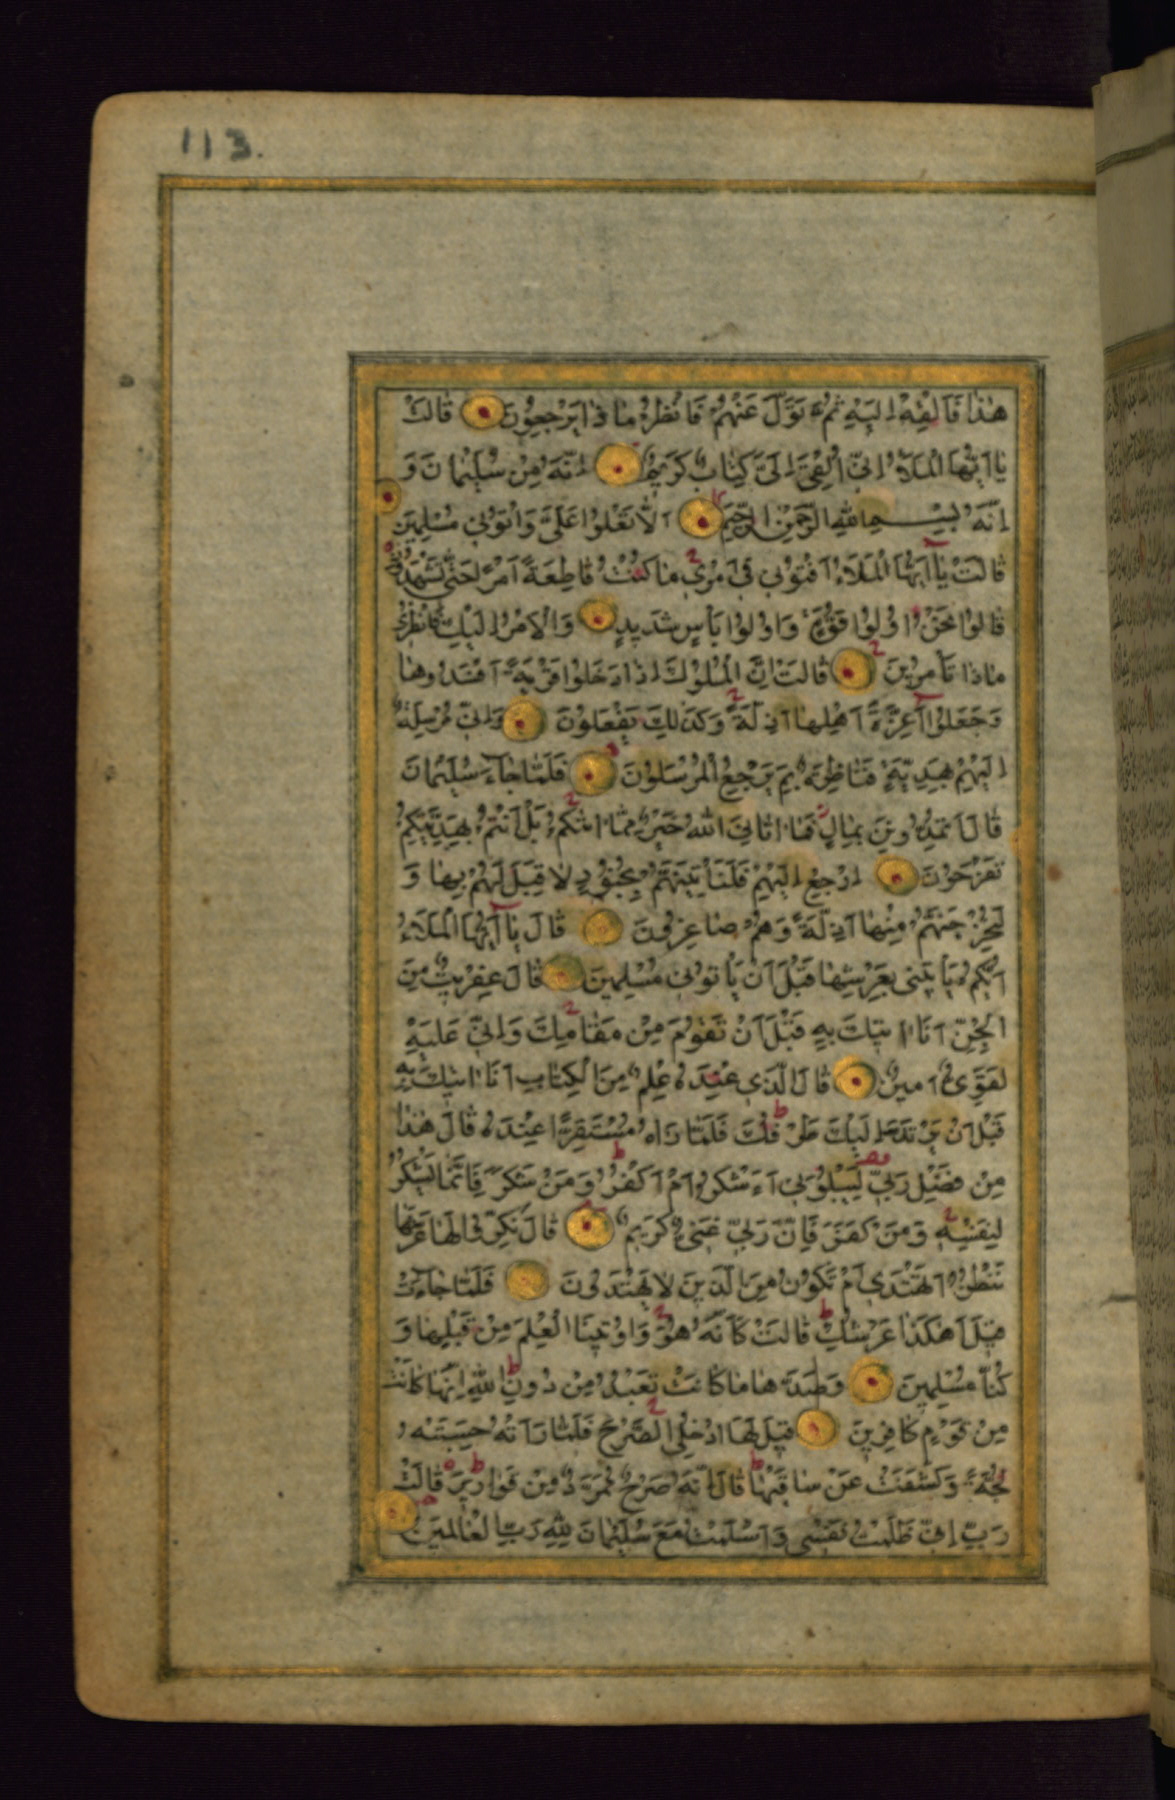 113.
هٰذا فَاَلْقِهْ اِلَيْهِ ثُمَّ تَوَلَّ عَنْهُمْ فَانْظُرْ مٰا ذٰا يَرْجِعُونَ قٰالَتْ
يٰا اَيُّهَا الْمَلَاُ اِنّى اُلْقِىَ اِلَىَّ كِتٰابٌ كَريمٌ اِنَّهُ مِنْ سُلَيْمٰانَ وَ
اِنَّهُ بِسْمِ اللّٰهِ الرَّحْمٰنِ الرَّحيمِ اَلّٰا تَعْلُوا عَلَىَّ وَاْتُونى مُسْلِمينَ
قٰالَتْ يٰا اَيُّهَا الْمَلَاُ اَفْتُونى فى اَمْرى مٰا كُنْتُ قٰاطِعَةً اَمْرًا حَتّٰى تَشْهَدُونِ
قٰالُوا نَحْنُ اُولُوا قُوَّةٍ وَاُولُوا بَاْسٍ شَديدٍ وَالْاَمْرُ اِلَيْكِ فَانْظُرى
مٰاذٰا تَاْمُرينَ قٰالَتْ اِنَّ الْمُلُوكَ اِذٰا دَخَلُوا قَرْيَةً اَفْسَدُوهٰا
وَجَعَلُوا اَعِزَّةَ اَهْلِهٰا اَذِلَّةً وَكَذٰلِكَ يَفْعَلُونَ وَاِنّى مُرْسِلَةٌ
اِلَيْهِمْ بِهَدِيَّةٍ فَنٰاظِرَةٌ بِمَ يَرْجِعُ الْمُرْسَلُونَ فَلَمّٰا جٰاءَ سُلَيْمٰانَ
قٰالَ اَتُمِدُّونَنِ بِمٰالٍ فَمٰا اٰتٰانِىَ اللّٰهُ خَيْرٌ مِمّٰا اٰتٰيكُمْ بَلْ اَنْتُمْ بِهَدِيَّتِكُمْ
تَفْرَحُونَ اِرْجِعْ اِلَيْهِمْ فَلَنَاْتِيَنَّهُمْ بِجُنُودٍ لٰا قِبَلَ لَهُمْ بِهٰا وَ
لَنُخْرِجَنَّهُمْ مِنْهٰا اَذِلَّةً وَهُمْ صٰاغِرُونَ قٰالَ يٰا اَيُّهَا الْمَلَاُ
اَيُّكُمْ يَاْتينى بِعَرْشِهٰا قَبْلَ اَنْ يَاْتُونى مُسْلِمينَ قٰالَ عِفْريتٌ مِنَ
الْجِنِّ اَنَا اٰتيكَ بِهِ قَبْلَ اَنْ تَقُومَ مِنْ مَقٰامِكَ وَاِنّى عَلَيْهِ
لَقَوِىٌّ اَمينٌ قٰالَ الَّذى عِنْدَهُ عِلْمٌ مِنَ الْكِتٰابِ اَنَا اٰتيكَ بِهِ
قَبْلَ اَنْ يَرْتَدَّ اِلَيْكَ طَرْفُكَ فَلَمّٰا رَاٰهُ مُسْتَقِرًّا عِنْدَهُ قٰالَ هٰذٰا
مِنْ فَضْلِ رَبّى لِيَبْلُوَنى ءَاَشْكُرُ اَمْ اَكْفُرُ وَمَنْ شَكَرَ فَاِنَّمٰا يَشْكُرُ
لِنَفْسِهِ وَمَنْ كَفَرَ فَاِنَّ رَبّى غَنِىٌّ كَريمٌ قٰالَ نَكِّرُوا لَهٰا عَرْشَهٰا
نَنْظُرْ اَتَهْتَدى اَمْ تَكُونُ مِنَ الَّذينَ لٰا يَهْتَدُونَ فَلَمّٰا جٰاءَتْ
قيلَ اَهٰكَذٰا عَرْشُكِ قٰالَتْ كَاَنَّهُ هُوَ وَاُوتينَا الْعِلْمَ مِنْ قَبْلِهٰا وَ
كُنّٰا مُسْلِمينَ وَصَدَّهٰا مٰا كٰانَتْ تَعْبُدُ مِنْ دُونِ اللّٰهِ اِنَّهٰا كٰانَتْ
مِنْ قَوْمٍ كٰافِرينَ قيلَ لَهَا ادْخُلِى الصَّرْحَ فَلَمّٰا رَاَتْهُ حَسِبَتْهُ
لُجَّةً وَكَشَفَتْ عَنْ سٰاقَيْهٰا قٰالَ اِنَّهُ صَرْحٌ مُمَرَّدٌ مِنْ قَوٰاريرَ قٰالَتْ
رَبِّ اِنّى ظَلَمْتُ نَفْسى وَاَسْلَمْتُ مَعَ سُلَيْمٰانَ لِلّٰهِ رَبِّ الْعٰالَمينَ